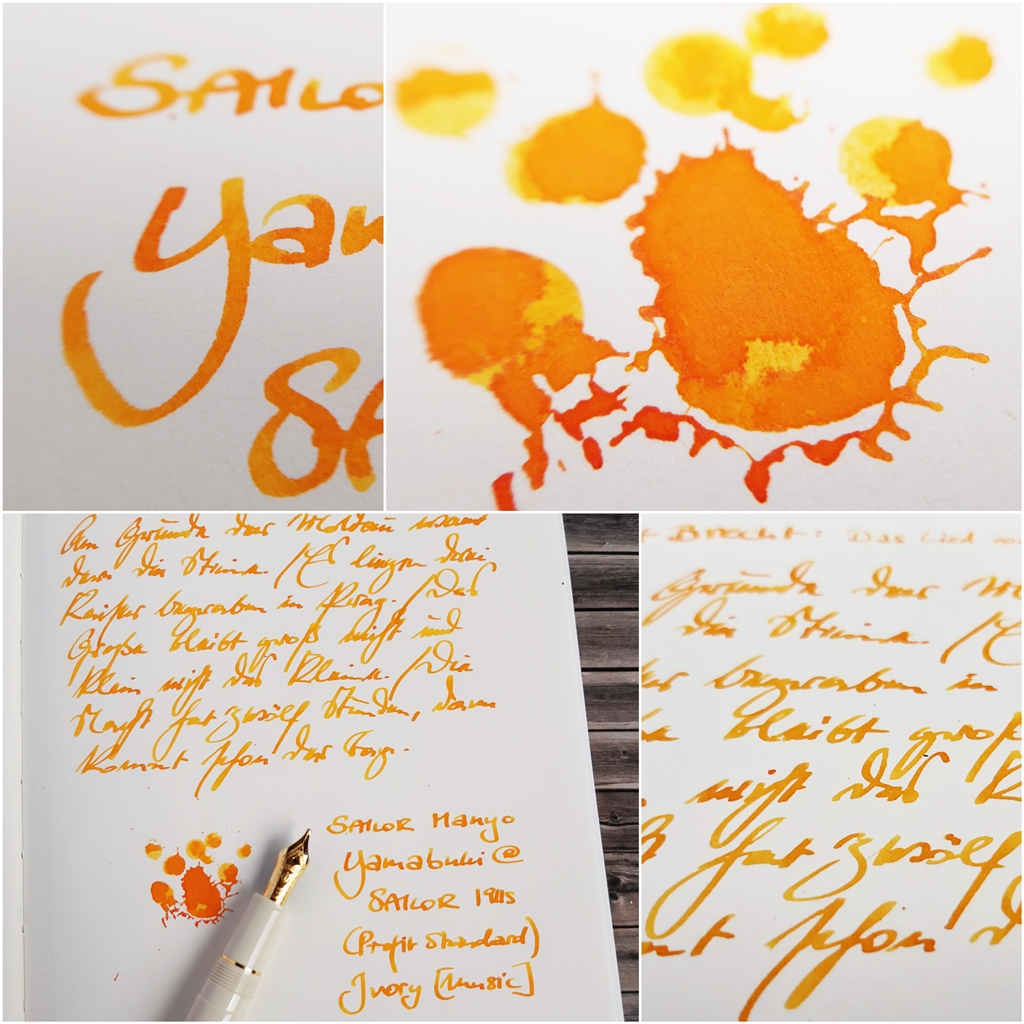 SAILO
Yam
SA
Am Grunde der Moldau wan
dern die Steine. / Es liegen drei
Kaiser begraben in Prag. / Das
Große bleibt groß nicht und
klein nicht das Kleine. / Die
Nacht hat zwölf Stunden, dann
kommt schon der Tag.
SAILOR Manyo
Yamabuki @
SAILOR 1911s
(Profit Standard)
Ivory [Music]
t Brecht: Das Lied vo
Grunde der Mo
die Steine. / E
ser begraben in
e bleibt groß
nicht das K
t hat zwölf
mt schon d